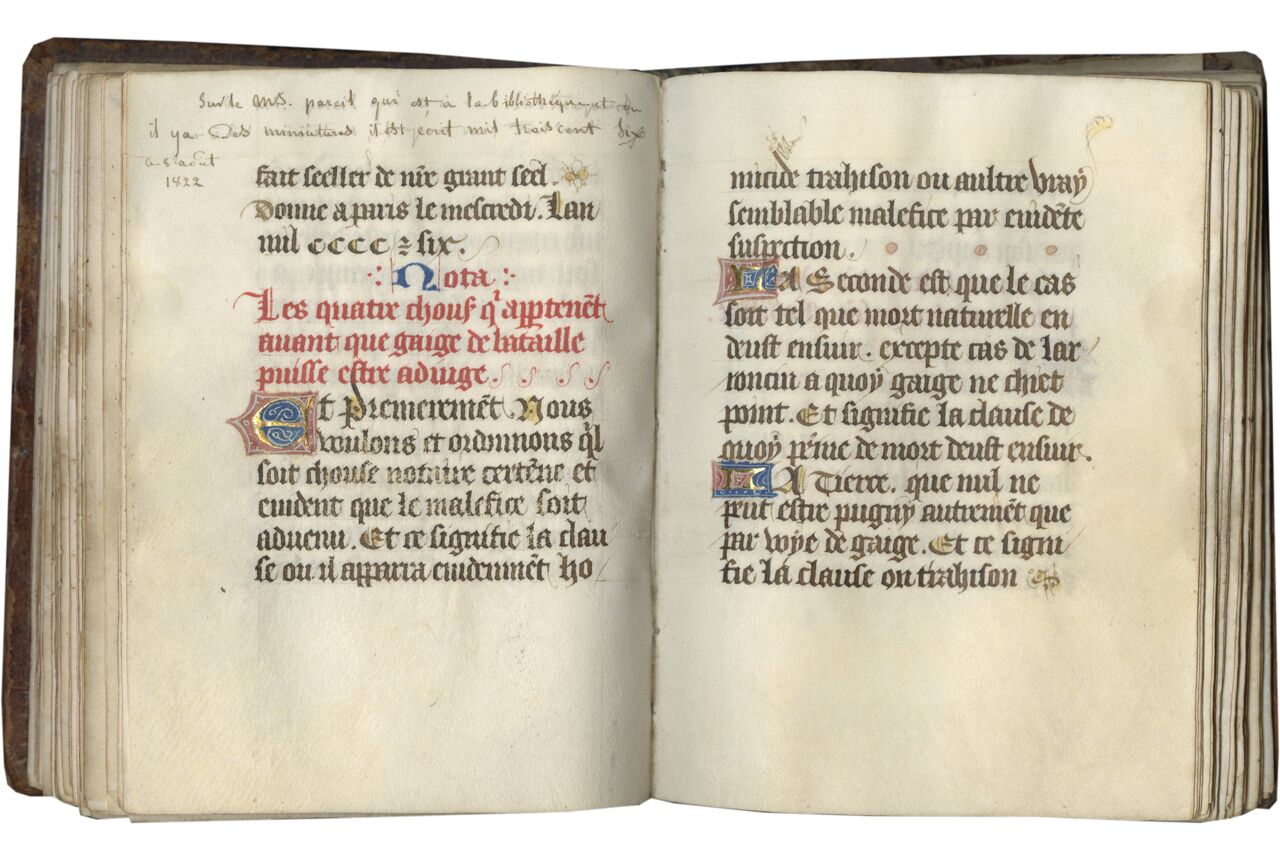 Sur le Ms. pareil qui est à la bibliothèque et ou
il ya Des miniatures il est ecrit mil trois cent six
ce 5 aout
1822
fait seeller de nr̄e grant seel.
Donne a paris le mescredi. Lan
mil cccc ⁊ six.
Nota
Les quatre chous̄ q̄ apptenēt
auant que gaige de bataille
puisse estre adiuge
Et Premieremēt Nous
voulons et ordonnons ql̄
soit chouse notoire certēne et
euident que le malefice soit
aduenu. Et ce signifie la clau
se ou il apparra euidenmēt ho
micide trahison ou aultre vray
semblable malefice par euidēte
suspection.
LA Seconde est que le cas
soit tel que mort naturelle en
deust ensuir. excepte cas de lar
roncin a quoy gaige ne chiet
point. Et signifie la clause de
quoy peīne de mort deust ensuir.
LA Tierce. que nul ne
peut estre pugny autremēt que
par voye de gaige. Et ce signi
fie la clause on trahison